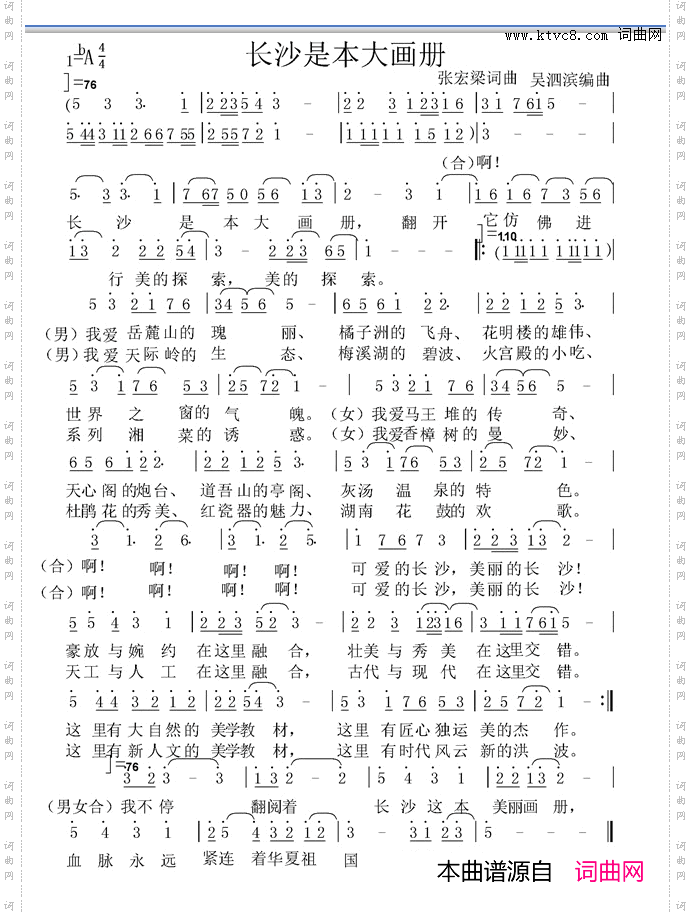 www.ktvc8.com 词曲网
长沙是本大画册
1=bA 4/4
张宏梁词曲 吴泗滨编曲
=76
(5 3 3· 1 | 2 2 2 3 5 4 3 - | 2 2 3 1 2 3 1 6 | 3 1 7 6 1 5 -
5 4 4 3 1 1 2 6 6 7 5 5 | 2 5 5 7 2 1 - | 1 1 1 1 1 1 5 1 5 2 ) | 3 - - - |
(合)啊!
5· 3 3· 1 | 7 6 7 5 0 5 6 1 3 | 2 - 3 1 | 1 6 1 6 7 3 5 6 |
长 沙 是 本 大 画 册, 翻 开 它 仿 佛 进
=110
1 3 2 2 2 5 4 | 3 - 2 2 3 6 5 | 1 - - - ‖: (1 1 1 1 1 1 1 1 1 1)
行 美的探 索, 美的 探 索。
5 3 2 1 7 6 | 3 4 5 6 5 - | 6 5 6 1 2 2· | 2 2 1 2 5 3· |
(男)我爱 岳麓山的 瑰 丽、 橘子洲的 飞舟、 花明楼的雄伟、
(男)我爱 天际岭的 生 态、 梅溪湖的 碧波、 火宫殿的小吃、
5 3 1 7 6 5 3 | 2 5 7 2 1 - | 5 3 2 1 7 6 | 3 4 5 6 5 - |
世界 之 窗的 气 魄。(女)我爱马王 堆的 传 奇、
系列 湘 菜的 诱 惑。(女)我爱香樟 树的 曼 妙、
6 5 6 1 2 2· | 2 2 1 2 5 3· | 5 3 1 7 6 5 3 | 2 5 7 2 1 - |
天心阁的炮台、 道吾山的亭阁、 灰汤 温 泉的 特 色。
杜鹃花的秀美、 红瓷器的魅力、 湖南 花 鼓的 欢 歌。
3 1· 2 6· | 3 1· 2 5· | 1 7 6 7 3 | 2 2 2 3 1 3 2 - |
(合)啊! 啊! 啊! 啊! 可 爱的长沙, 美丽的长 沙!
(合)啊! 啊! 啊! 啊! 可 爱的长沙, 美丽的长 沙!
5 5 4 3 1 | 2 2 2 3 5 2 - | 2 2 3 1 2 3 1 6 | 3 1 1 7 6 1 5 - |
豪放与婉 约 在这里融 合, 壮美与秀 美 在这里交 错。
天工与人 工 在这里融 合, 古代与现 代 在这里交 错。
5 4 4 3 2 1 2 | 2 2 5 4 3 - | 5 3 1 7 6 5 3 | 2 5 7 2 1 - :‖
这 里有 大自然的 美学教 材, 这里 有匠心独运 美的杰 作。
这 里有 新人文的 美学教 材, 这里 有时代风云 新的洪 波。
=76
3 2 3 - 3 | 1 3 2 2 - 2 | 5 4 3 1 | 2 1 2 3 2 - |
(男女合)我不停 翻阅着 长沙这本 美丽画 册,
5 4 3 1 | 2 5 4 3 2 1 2 | 3 - 3 1 2 3 | 5 - - - ‖
血 脉 永 远 紧连 着华夏祖 国
本曲谱源自 词曲网